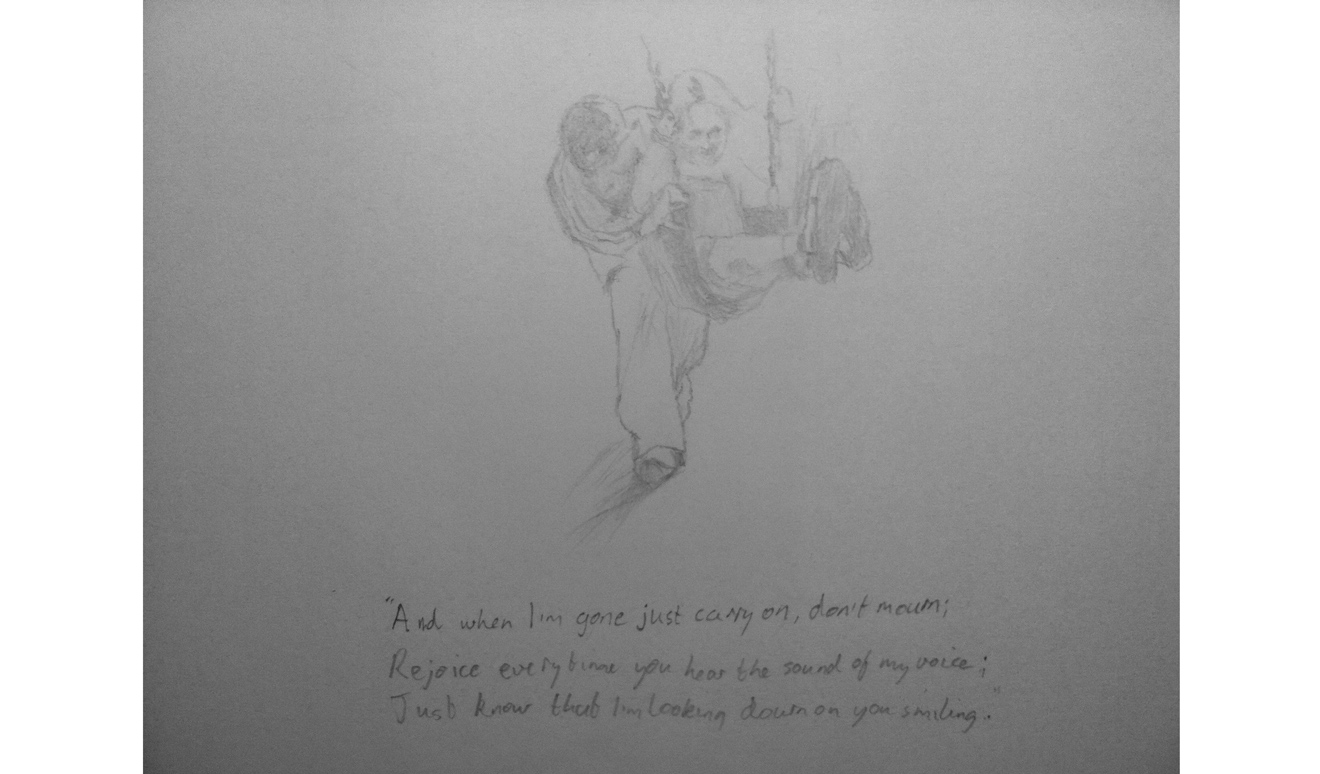 "And when I'm gone just carry on, don't mourn;
Rejoice everytime you hear the sound of my voice;
Just know that I'm looking down on you smiling."